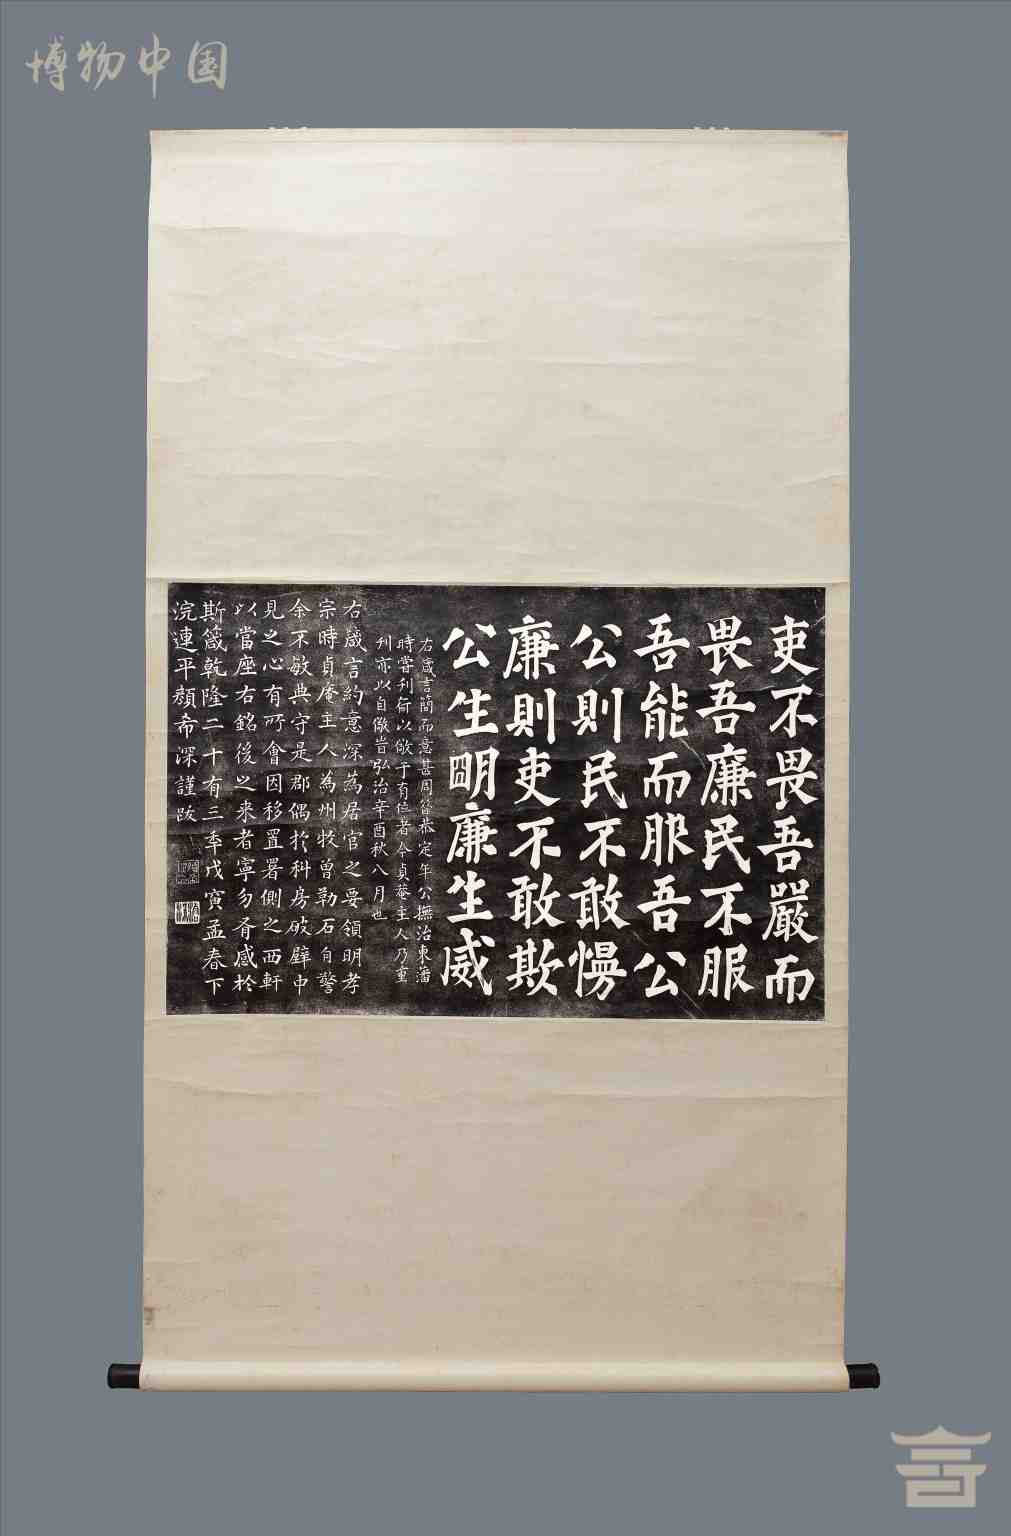 博物中国
吏不畏吾嚴而
畏吾廉民不服
吾能而服吾公
公則民不敢慢
廉則吏不敢欺
公生明廉生威
右箴言簡而意甚周箇恭定年公撫治東藩
時嘗刊荷以儆于有位者今貞菴主人乃重
刊亦以自儆旹弘治辛酉秋八月也
右箴言約意深為居官之要領明孝
宗時貞庵主人為州牧曾勒石自警
余不敏典守是郡偶扵科房破壁中
見之心有所會因移置署側之西軒
以當座右銘後之来者寧勿有感扵
斯箴乾隆二十有三季戊寅孟春下
浣連平顏希深謹跋